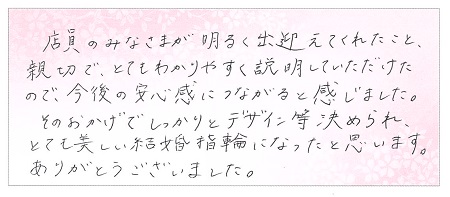 店員のみなさまが明るく出迎えてくれたこと、
親切で、とてもわかりやすく説明していただけた
ので、今後の安心感につながると感じました。
そのおかげでしっかりとデザイン等決められ、
とても美しい結婚指輪になったと思います。
ありがとうございました。